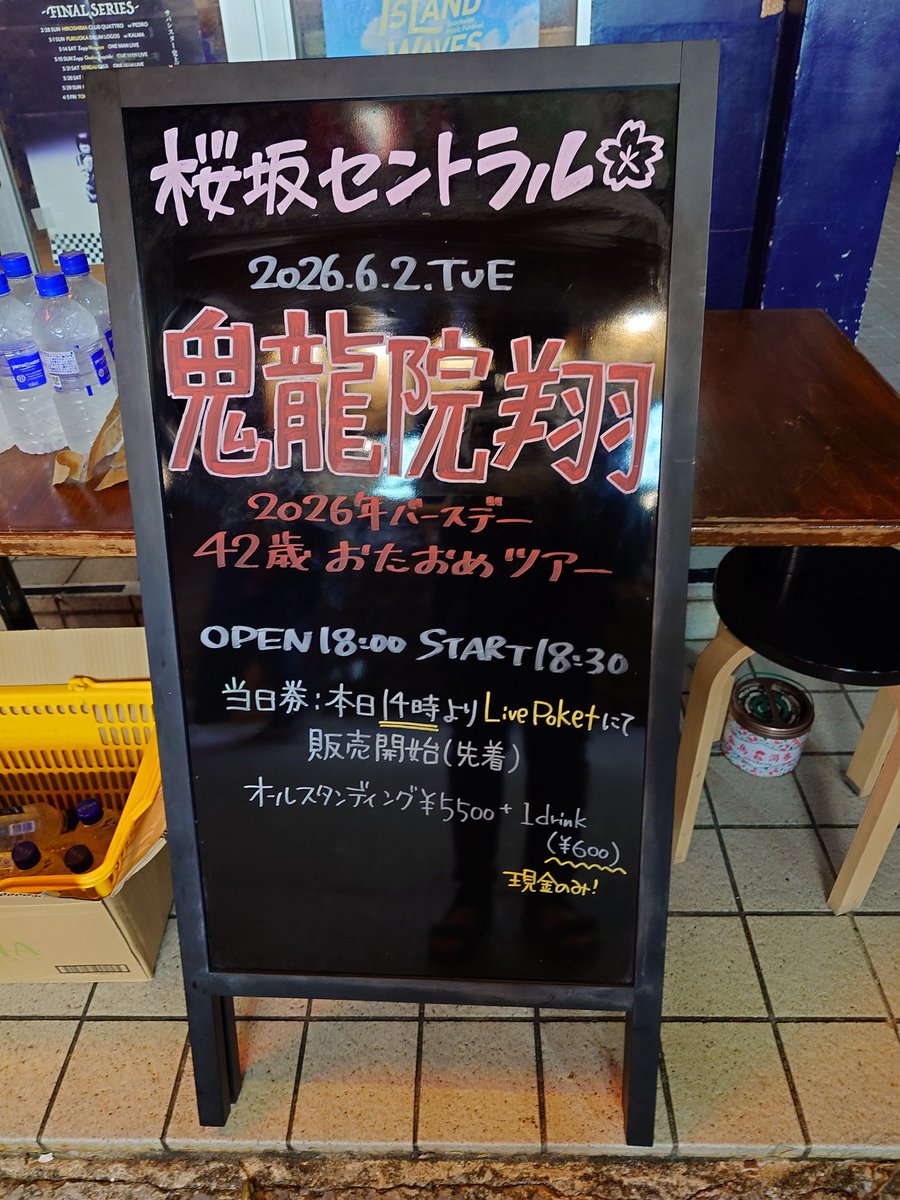 FINAL SERIES
2/28 SUN HIROSHIMA CLUB QUATTRO w/ PEDRO
5/1 SUN FUKUOKA DRUM LOGOS w/ KALMA
5/14 SAT Zepp Nagoya ONE MAN LIVE
ISLAND
WAVES
桜坂セントラル
2026.6.2.TUE
鬼龍院翔
2026年バースデー
42歳 おたおめツアー
OPEN 18:00 START 18:30
当日券:本日14時よりLive Poketにて
販売開始(先着)
オールスタンディング¥5500+1drink
(¥600)
現金のみ!